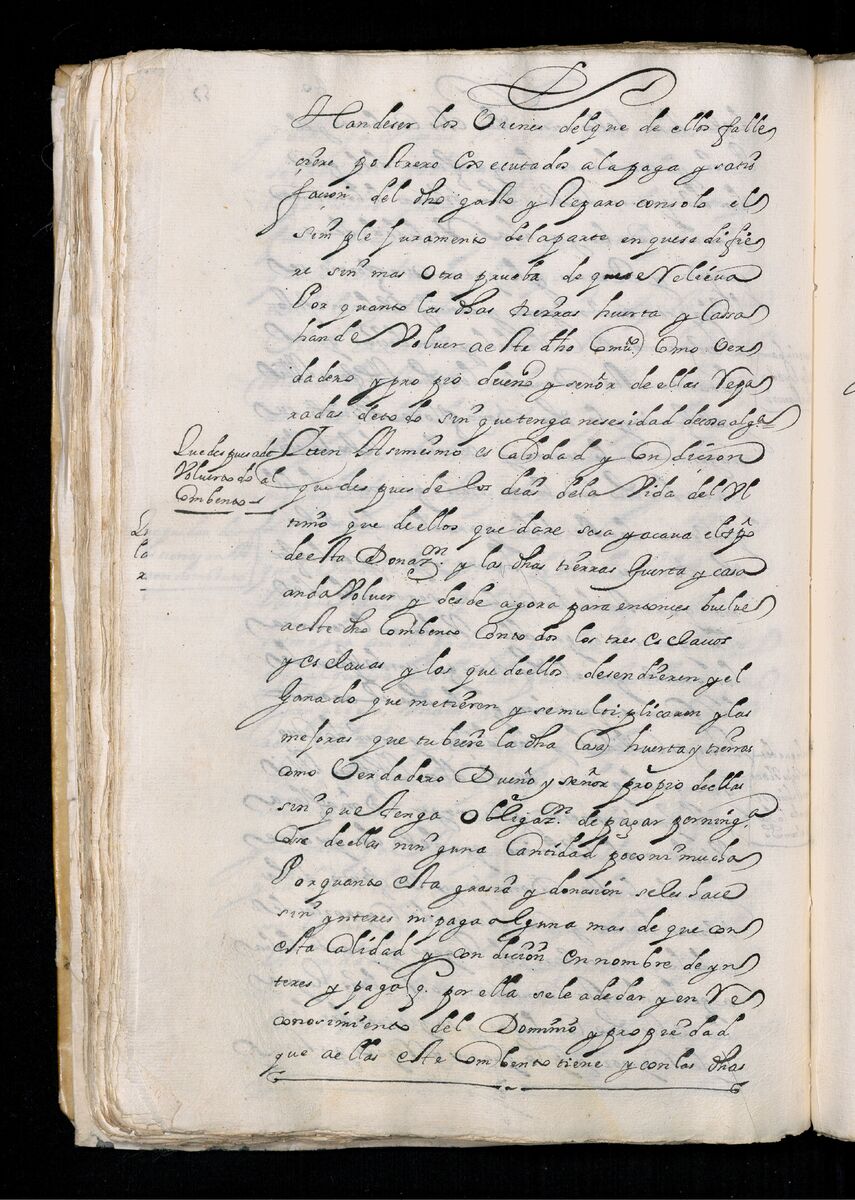 Han de ser los Vienes del que de ellos falle
ciere postrero executados a la paga y satis
facion del dho gasto y Reparo con solo el
simple Juramento de la parte en que se difie
re sin mas otra prueba de que se Relieva
Por quanto las dhas tierras huerta y Cassa
han de Volver a este dho Combto como Ver
dadero y propio dueño y señor de ellas Repa
radas de todo sin que tenga nesesidad de cosa alga
Que despues a de
Volverlo do al
Combento
Yten Asimismo es Calidad y Condicion
que despues de los dias de la Vida del Vl
timo que de ellos quedare sesa y acava el tpo
de esta Donazn y las dhas tierras huerta y casa
an de Volver y desde agora para entonces buelve
a este dho Combento con todos los tres esclavos
y esclavas y los que de ellos desendieren y el
Ganado que metieren y se multiplicaren y las
mejoras que tubiere la dha Casa huerta y tierras
como Verdadero Dueño y señor propio de ellas
sin que tenga Obligazn de pagar por ninga
de ellas ninguna Cantidad poca ni mucha
Por quanto esta grasia y donasion se les hace
sin ynteres ni paga alguna mas de que con
esta Calidad y condicion en nombre de yn
teres y paga q. por ella se le a de dar y en Re
conosimiento del Dominio y propiedad
que a ellas este Combento tiene y con las dhas